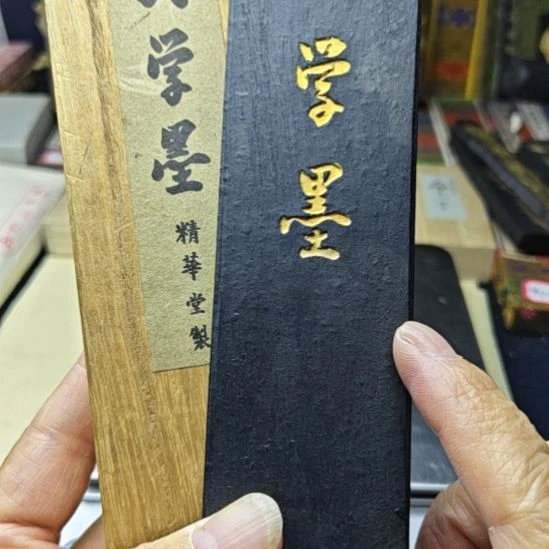 学墨
精華堂製
学墨